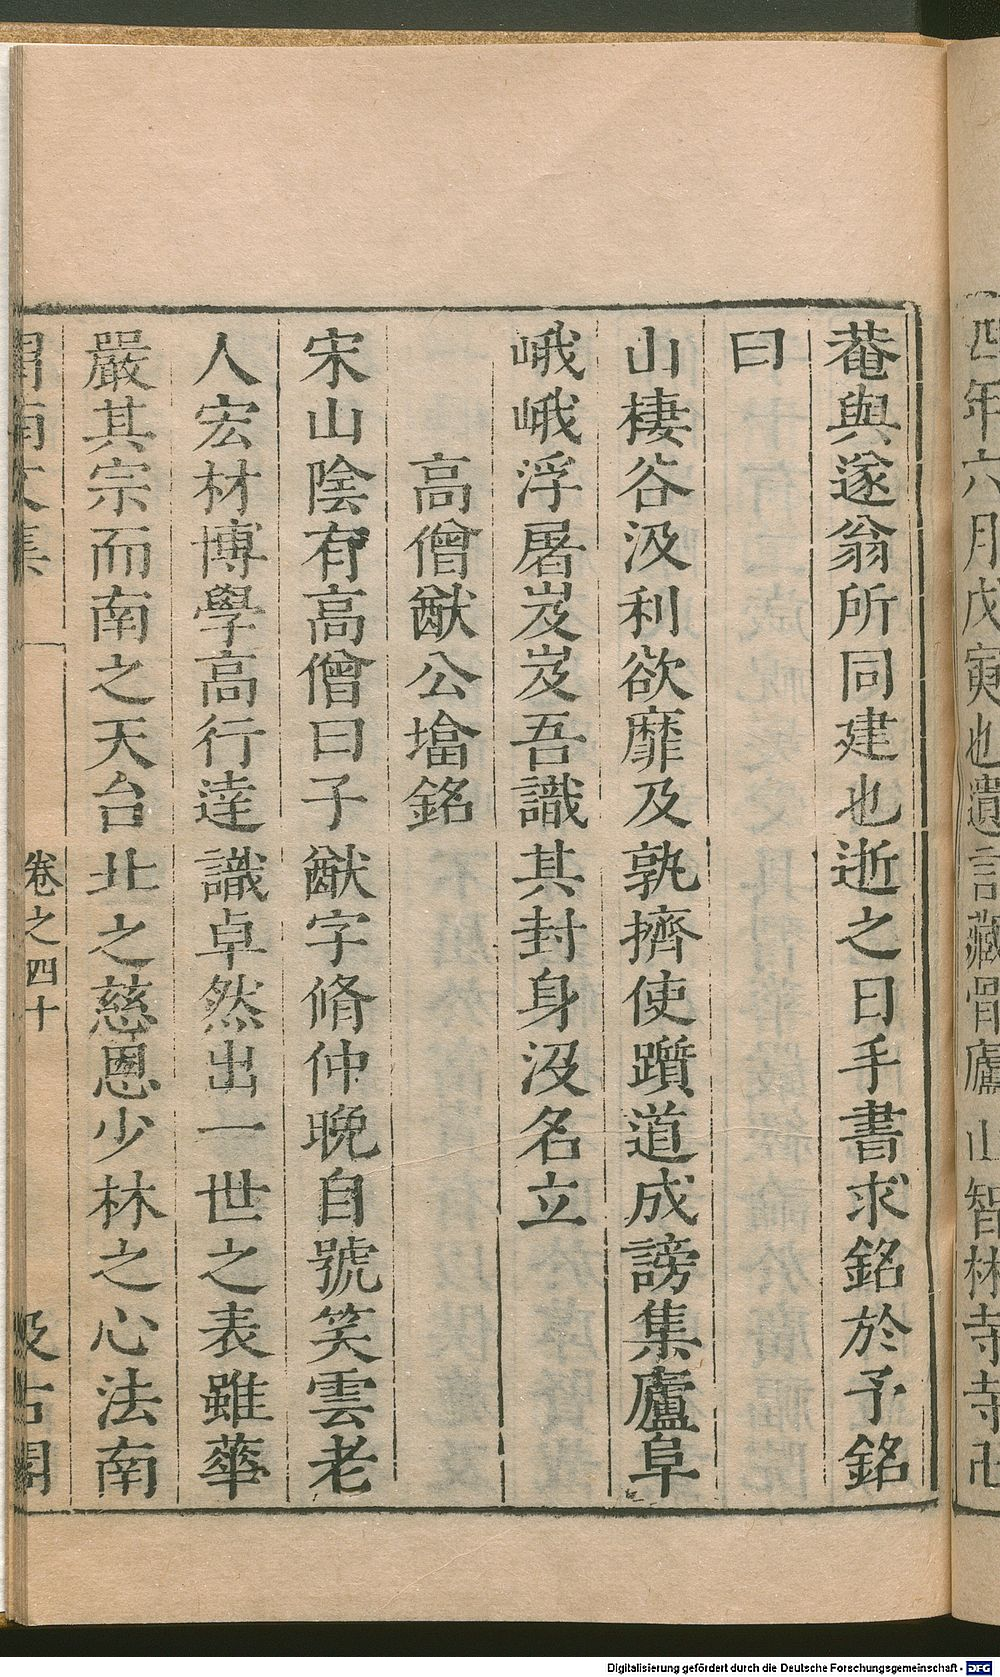 四年六月戊寅也遺言藏骨廬山智林寺寺
菴與遂翁所同建也逝之日手書求銘於予銘
曰
山棲谷汲利欲靡及孰擠使躓道成謗集廬阜
峨峨浮屠岌岌吾識其封身沒名立
高僧猷公塔銘
宋山陰有高僧曰子猷字脩仲晚自號笑雲老
人宏材博學高行達識卓然出一世之表雖華
嚴其宗而南之天台北之慈恩少林之心法南
渭南文集 卷之四十 汲古閣
Digitalisierung gefördert durch die Deutsche Forschungsgemeinschaft - DFG